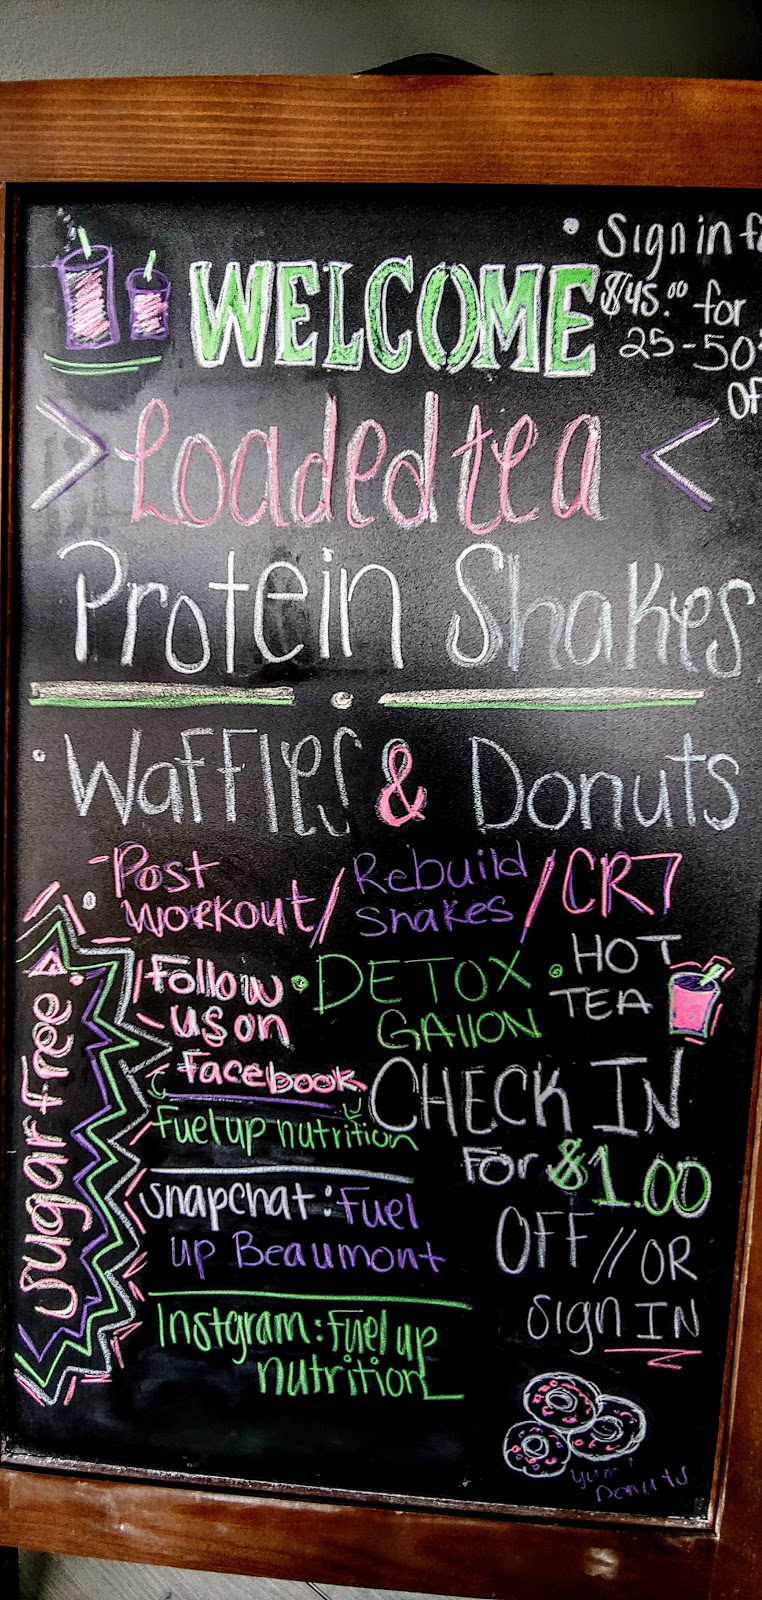 WELCOME
• Sign in
$45.00 for
25-50
Loaded tea
Protein Shakes
• Waffles & Donuts
Post
Workout / Rebuild
Shakes / CR7
Sugar free!
Follow
us on
Facebook
Fuel up nutrition
• DETOX
GALLON
• HOT
TEA
CHECK IN
FOR $1.00
OFF // OR
Sign IN
Snapchat: Fuel
up Beaumont
Instgram: Fuel up
nutrition
Yum!
Donuts